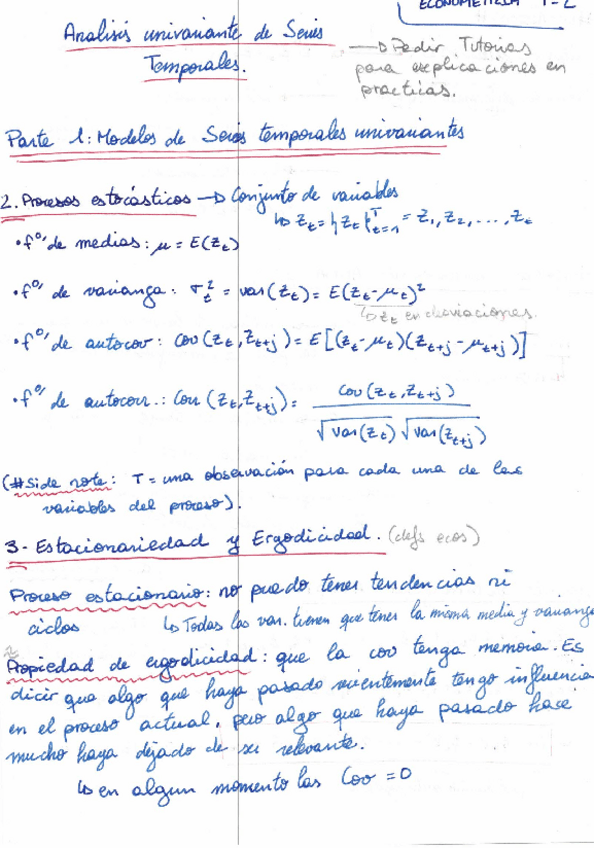 ECONOMETRICA T-2
Analisis univariante de Series
Temporales.
→ Pedir Tutorias
para explicaciones en
practicas.
Parte 1: Modelos de Series temporales univariantes
2. Procesos estocásticos → Conjunto de variables
↳ Z_t = {Z_t}_{t=1}^T = Z_1, Z_2, ..., Z_t
• f° de medias: μ = E(Z_t)
• f° de varianza: σ_t^2 = var(Z_t) = E(Z_t - μ_t)^2
↳ Z_t en desviaciones.
• f° de autocov: cov(Z_t, Z_{t+j}) = E[(Z_t - μ_t)(Z_{t+j} - μ_{t+j})]
• f° de autocorr.: Corr (Z_t, Z_{t+j}) = cov(Z_t, Z_{t+j}) / √var(Z_t) √var(Z_{t+j})
(#Side note: T = una observación para cada una de las
variables del proceso).
3 - Estacionariedad y Ergodicidad. (defs ecos)
Proceso estacionario: no puedo tener tendencias ni
ciclos ↳ Todas las var. tienen que tener la misma media y varianza
Propiedad de ergodicidad: que la cov tenga memoria. Es
dicir que algo que haya pasado recientemente tenga influencia
en el proceso actual, pero algo que haya pasado hace
mucho haya dejado de ser relevante.
↳ en algun momento las Cov = 0